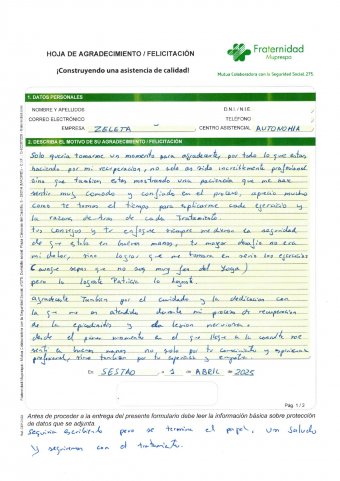 HOJA DE AGRADECIMIENTO / FELICITACIÓN
Fraternidad
Muprespa
¡Construyendo una asistencia de calidad!
Mutua Colaboradora con la Seguridad Social, 275
1. DATOS PERSONALES
NOMBRE Y APELLIDOS D.N.I. / N.I.E.
CORREO ELECTRÓNICO TELÉFONO
EMPRESA ZELETA CENTRO ASISTENCIAL AUTONOMIA
2. DESCRIBA EL MOTIVO DE SU AGRADECIMIENTO / FELICITACIÓN
Solo queria tomarme un momento para agradecerte por todo lo que estas
haciendo por mi recuperacion, no solo sos increiblemente profesional
sino que tambien estas mostrando una paciencia que me hace
sentir muy comodo y confiado en el proceso, aprecio mucho
como te tomas el tiempo para explicarme cada ejercicio y
la razon detras de cada tratamiento.
Tus consejos y tu enfoque siempre me dieron la seguridad
de que estaba en buenas manos, tu mayor desafio no era
mi dolor, sino lograr que me tomara en serio los ejercicios
(aunque sepas que no soy muy fan del Yoga)
pero lo lograste Patricia lo lograste.
Agradecerte Tambien por el cuidado y la dedicacion con
la que me as atendido durante mi proceso de recuperacion
de la epicondilitis y la lesion nerviosa.
desde el primer momento en el que llegue a la consulta me
senti en buenas manos no, solo por tu conocimiento y experiencia
profesional, sino tambien por tu empatia.
En SESTAO , 1 de ABRIL de 2025
Pág. 1 / 2
Antes de proceder a la entrega del presente formulario debe leer la información básica sobre protección
de datos que se adjunta.
Seguiria escribiendo pero se termina el papel, un saludo
y seguiremos con el tratamiento.